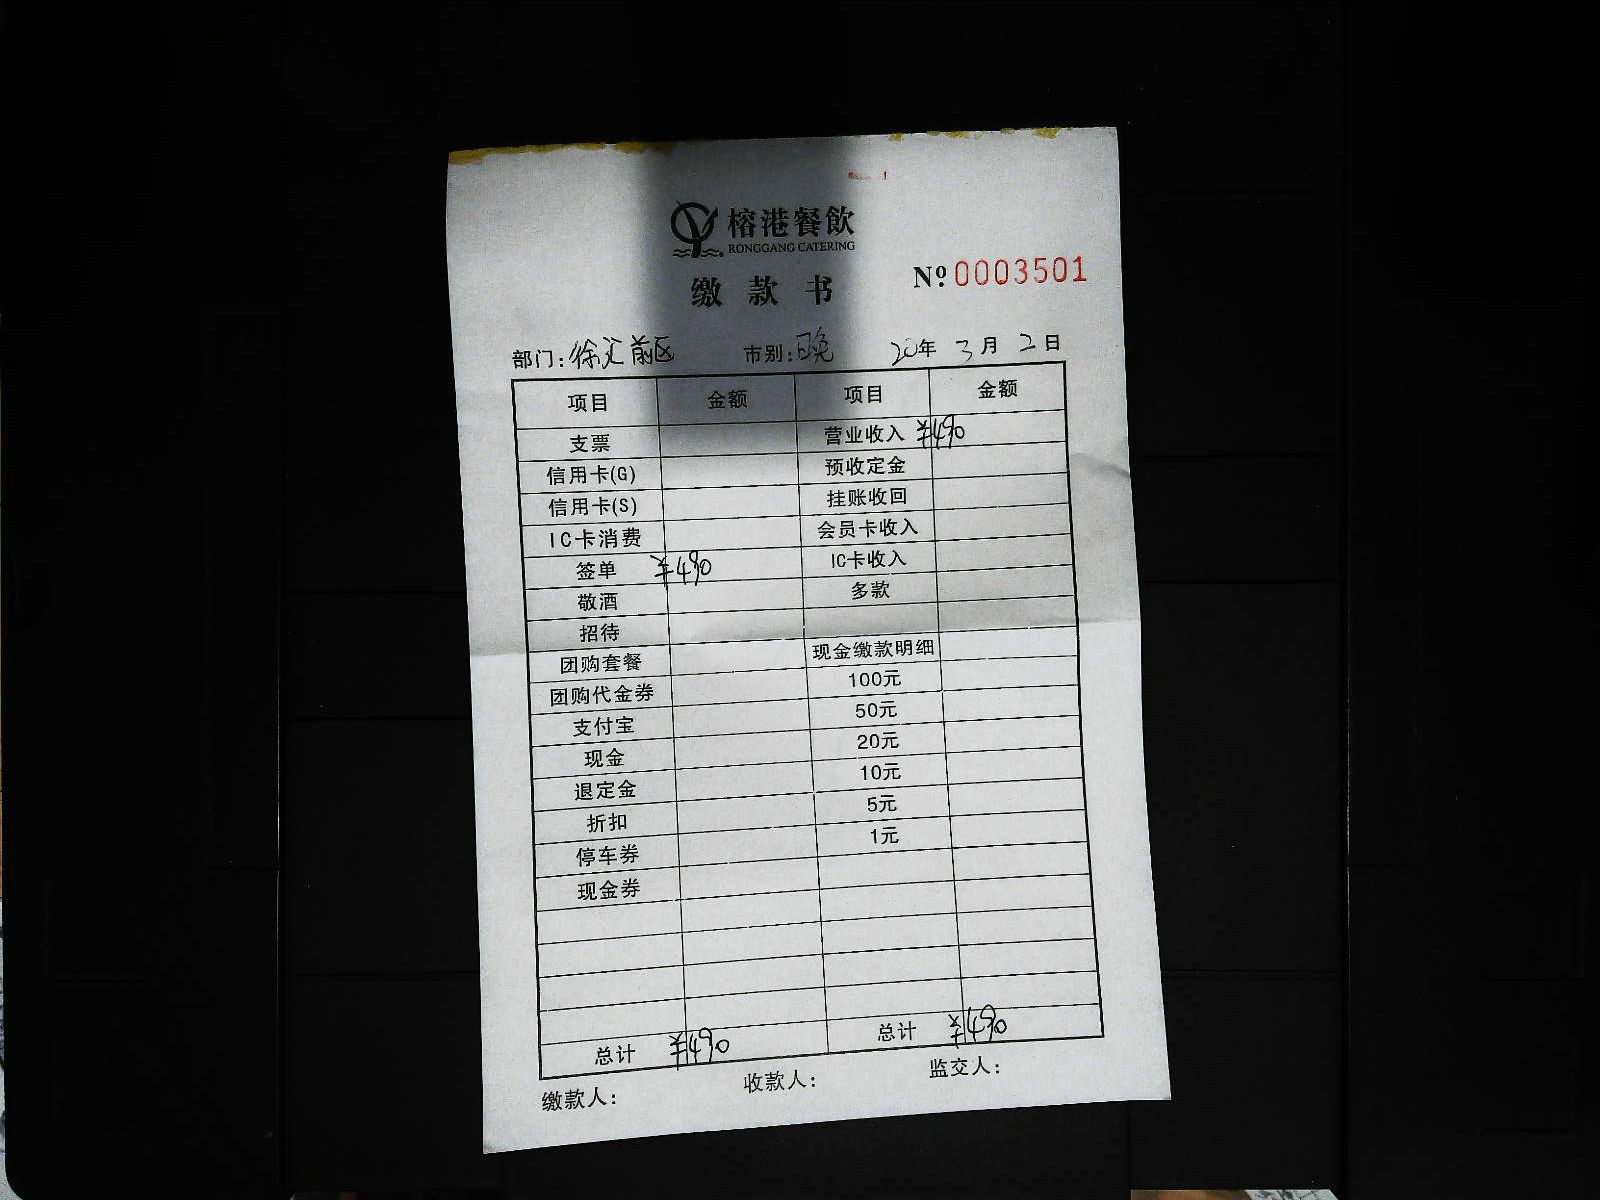 榕港餐飲
RONGGANG CATERING
缴款书 Nº 0003501
部门: 徐汇前区 市别: 晚 20年 3月 2日
项目 金额 项目 金额
支票 营业收入 ¥490
信用卡(G) 预收定金
信用卡(S) 挂账收回
IC卡消费 会员卡收入
签单 ¥490 IC卡收入
敬酒 多款
招待
团购套餐 现金缴款明细
团购代金券 100元
支付宝 50元
现金 20元
退定金 10元
折扣 5元
停车券 1元
现金券
总计 ¥490 总计 ¥490
缴款人: 收款人: 监交人: